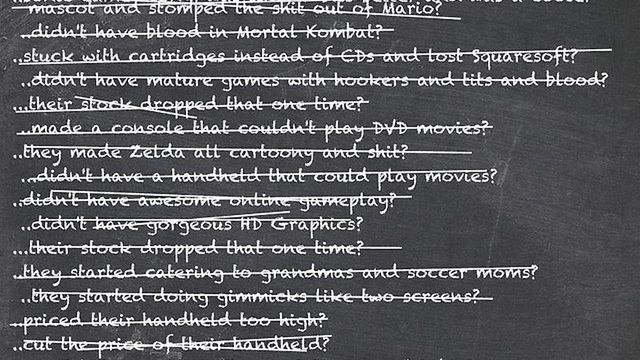 mascot and stomped the shit out of Mario?
..didn't have blood in Mortal Kombat?
..stuck with cartridges instead of CDs and lost Squaresoft?
..didn't have mature games with hookers and tits and blood?
...their stock dropped that one time?
..made a console that couldn't play DVD movies?
..they made Zelda all cartoony and shit?
..didn't have a handheld that could play movies?
..didn't have awesome online gameplay?
..didn't have gorgeous HD Graphics?
...their stock dropped that one time?
..they started catering to grandmas and soccer moms?
..they started doing gimmicks like two screens?
..priced their handheld too high?
..cut the price of their handheld?